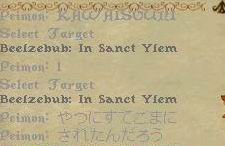 Peimon: KAWAISOUNI
Select Target
Beelzebub: In Sanct Ylem
Peimon: 1
Select Target
Beelzebub: In Sanct Ylem
Peimon: やつにすてごまに
Peimon: されたんだろう